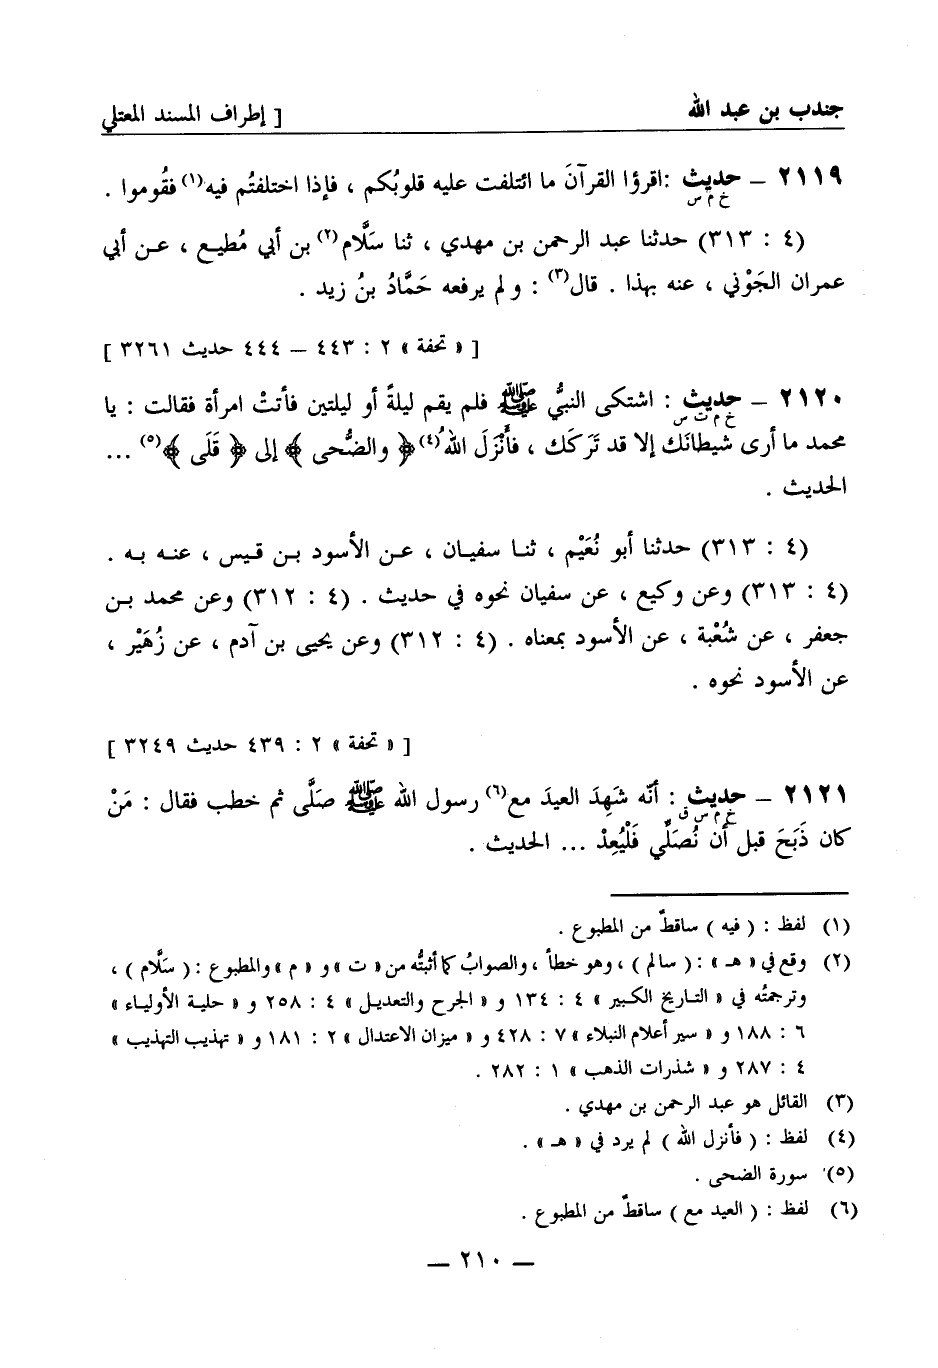 جندب بن عبد الله
[ إطراف المسند المعتلي
٢١١٩ – حديث : اقرؤا القرآنَ ما ائتلفت عليه قلوبُكم ، فإذا اختلفتُم فيه(١) فقُوموا .
خ م س
(٤ : ٣١٣) حدثنا عبد الرحمن بن مهدي ، ثنا سَلَّام(٢) بن أبي مُطيع ، عن أبي
عمران الجَوْني ، عنه بهذا . قال(٣) : و لم يرفعه حَمَّادُ بنُ زيد .
[ « تحفة » ٢ : ٤٤٣ – ٤٤٤ حديث ٣٢٦١ ]
٢١٢٠ – حديث : اشتكى النبيُّ ﷺ فلم يقم ليلةً أو ليلتين فأتتْ امرأة فقالت : يا
خ م ت س
محمد ما أرى شيطانَك إلا قد تَرَكَك ، فأَنْزَلَ اللهُ(٤) ﴿ والضُّحى ﴾ إلى ﴿ قَلَى ﴾(٥) ...
الحديث .
(٤ : ٣١٣) حدثنا أبو نُعَيْم ، ثنا سفيان ، عن الأسود بن قيس ، عنه به .
(٤ : ٣١٣) وعن وكيع ، عن سفيان نحوه في حديث . (٤ : ٣١٢) وعن محمد بن
جعفر ، عن شُعْبة ، عن الأسود بمعناه . (٤ : ٣١٢) وعن يحيى بن آدم ، عن زُهَيْر ،
عن الأسود نحوه .
[ « تحفة » ٢ : ٤٣٩ حديث ٣٢٤٩ ]
٢١٢١ – حديث : أنّه شَهِدَ العيدَ مع(٦) رسول الله ﷺ صَلَّى ثم خطب فقال : مَنْ
خ م س ق
كان ذَبَحَ قبل أن نُصَلِّي فَلْيُعِدْ ... الحديث .
(١) لفظ : ( فيه ) ساقطٌ من المطبوع .
(٢) وقع في « هـ » : ( سالم ) ، وهو خطأ ، والصوابُ كما أثبتُّه من « ت » و « م » والمطبوع : ( سَلَّام ) ،
وترجمتُه في « التاريخ الكبير » ٤ : ١٣٤ و « الجرح والتعديل » ٤ : ٢٥٨ و « حلية الأولياء »
٦ : ١٨٨ و « سير أعلام النبلاء » ٧ : ٤٢٨ و « ميزان الاعتدال » ٢ : ١٨١ و « تهذيب التهذيب »
٤ : ٢٨٧ و « شذرات الذهب » ١ : ٢٨٢ .
(٣) القائل هو عبد الرحمن بن مهدي .
(٤) لفظ : ( فأنزل الله ) لم يرد في « هـ » .
(٥) سورة الضحى .
(٦) لفظ : ( العيد مع ) ساقطٌ من المطبوع .
– ٢١٠ –